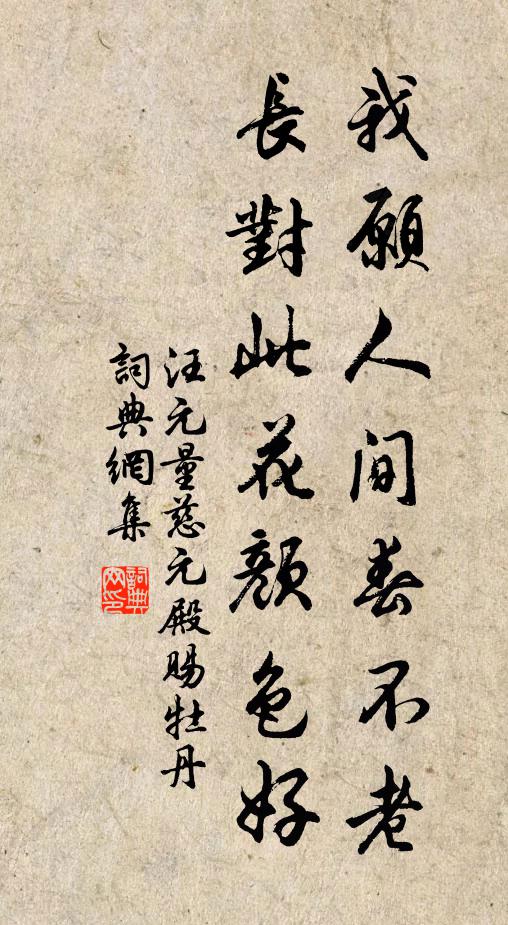 我願人間春不老
長對此花顏色好
汪元量慈元殿賜牡丹
詞典網集
詞典網印